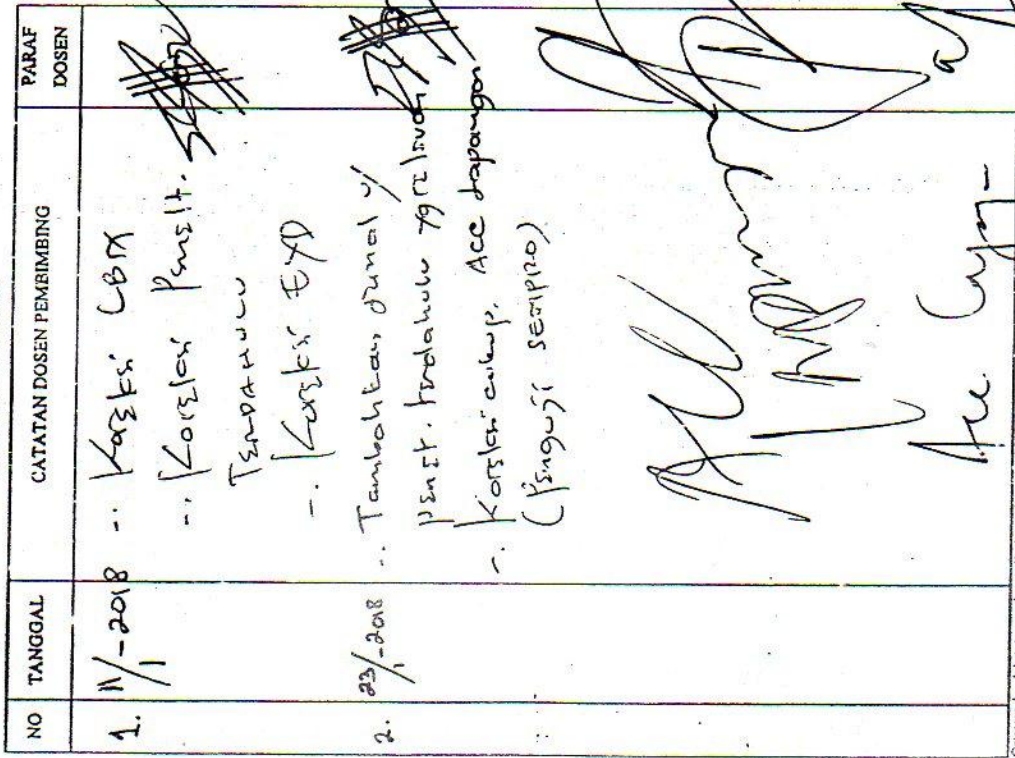 NO TANGGAL CATATAN DOSEN PEMBIMBING PARAF DOSEN
1. 11/1-2018 -. Koreksi LBM
-. Koreksi Penelt.
TERDAHULU
-. Koreksi EYD
2. 23/1-2018 -. Tambahkan jurnal u/
penelt. terdahulu yg relevan
-. Koreksi cukup. ACC lapangan
(Penguji SEMPRO)
Acc